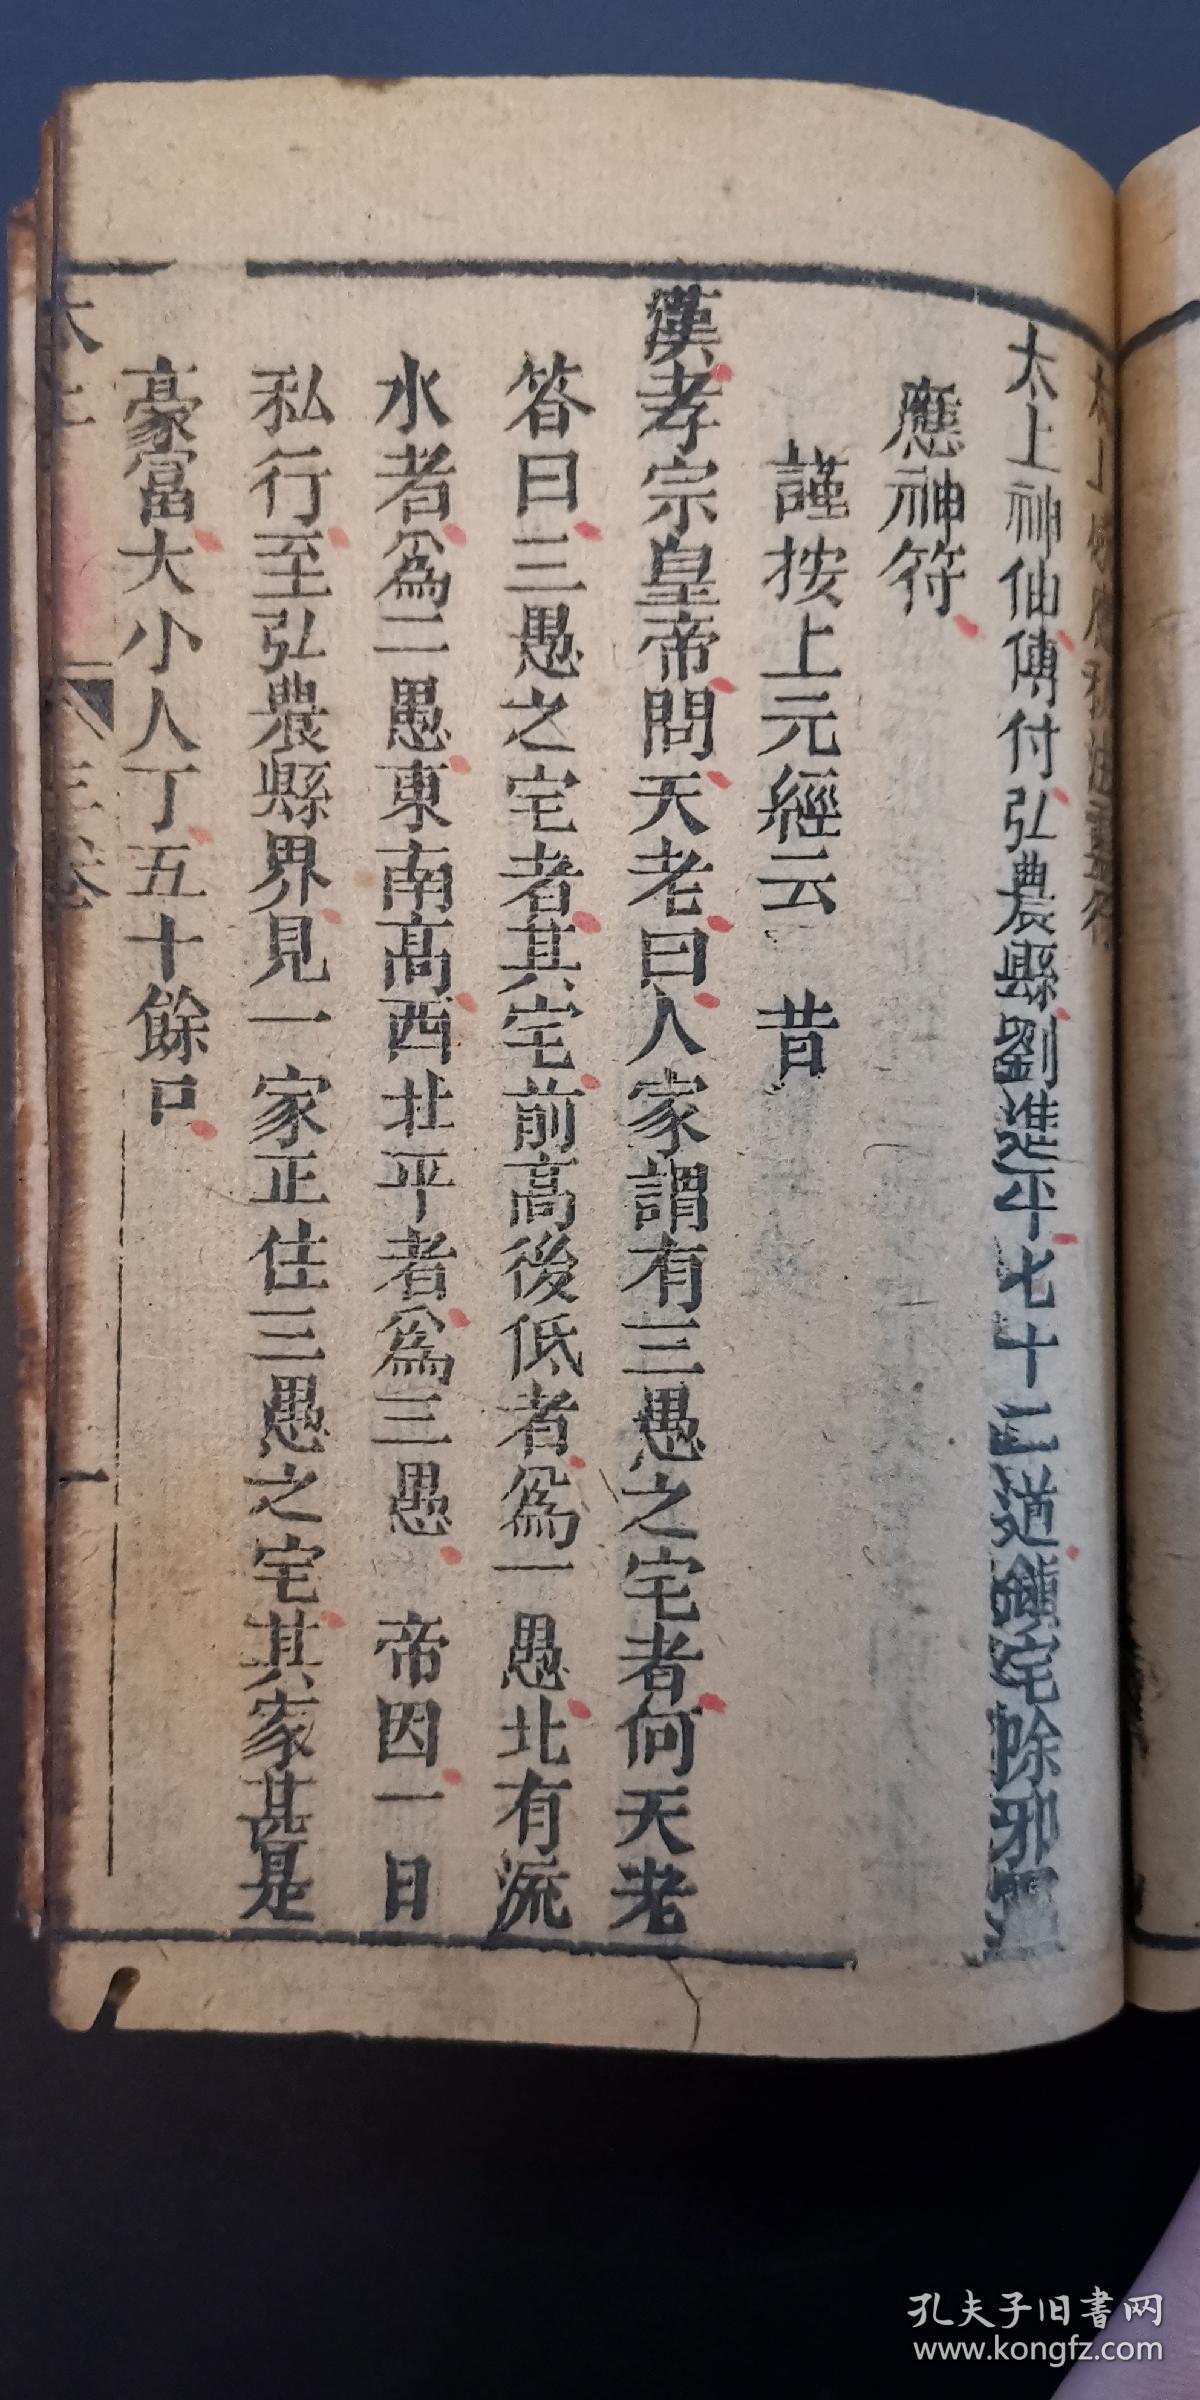 太上神仙傳付弘農縣劉進平七十二道鎮宅除邪靈
應神符
謹按上元經云 昔
漢孝宗皇帝問天老曰人家謂有三愚之宅者何天老
答曰三愚之宅者其宅前高後低者爲一愚北有流
水者爲二愚東南高西北平者爲三愚 帝因一日
私行至弘農縣界見一家正住三愚之宅其家甚是
豪富大小人丁五十餘口
三卷
一
孔夫子旧書网
www.kongfz.com